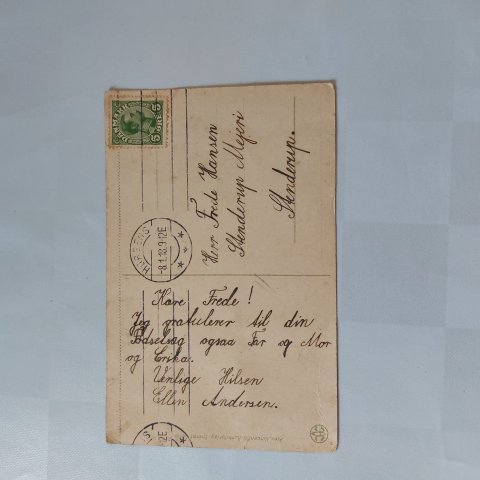 DANMARK
5 ØRE 5
-8.1.18.9-12E
Herr Frede Hansen
Stenderup Mejeri
Stenderup.
Kære Frede!
Jeg gratulerer til din
Fødselsdag ogsaa Far og Mor
og Erika.
Venlige Hilsen
Ellen Andersen.